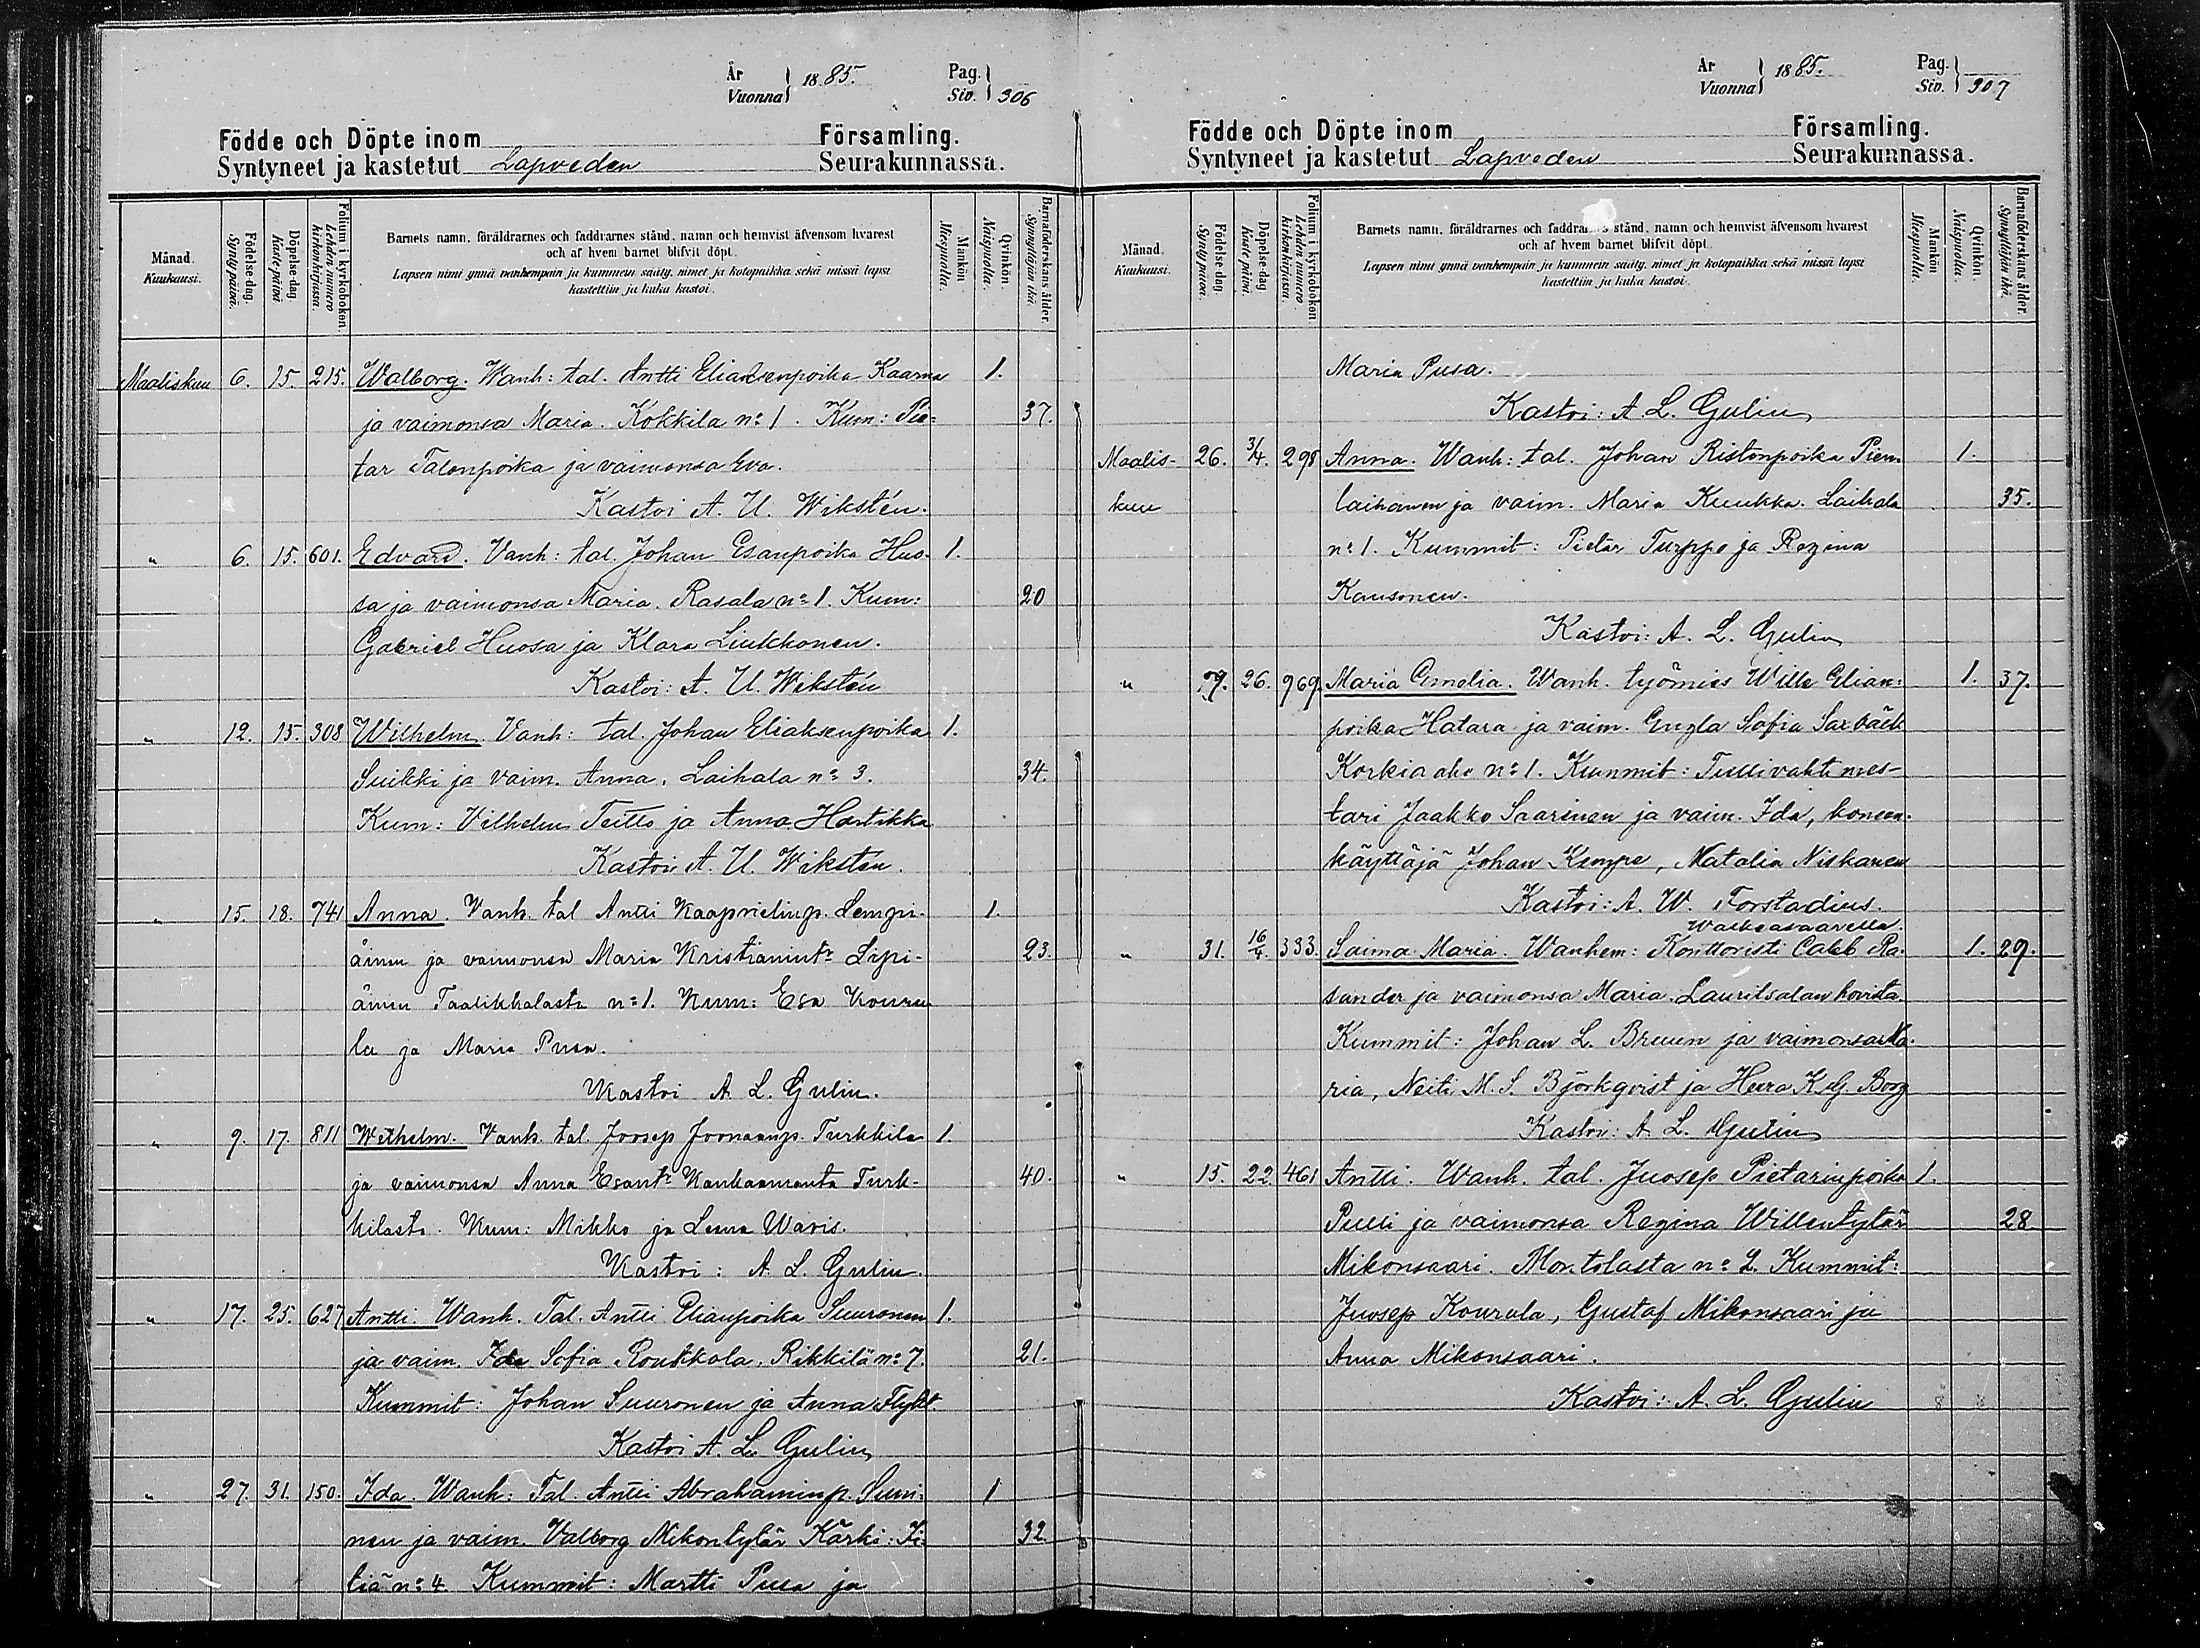 År
Vuonna 1885.
Pag.
Siv. 306
Födde och Döpte inom Församling.
Syntyneet ja kastetut Lapveden Seurakunnassa.
Månad.
Kuukausi.
Födelse-dag.
Syntypäivä.
Döpelse-dag
Kastepäivä
Folium i kyrkoboken.
Lehden numero kirkonkirjassa.
Barnets namn, föräldrarnes och faddrarnes stånd, namn och hemvist äfvensom hvarest
och af hvem barnet blifvit döpt.
Lapsen nimi ynnä vanhempain ja kummein sääty, nimet ja kotopaikka sekä missä lapsi
kastettiin ja kuka kastoi.
Mankön
Miespuolia.
Qvinkön
Naispuolia.
Barnaföderskans ålder.
Synnyttäjän ikä.
Maaliskuu 6. 15. 215. Walborg. Wanh: tal. Antti Eliaksenpoika Kaarna 1.
ja vaimonsa Maria. Kokkila n:o 1. Kum: Pie= 37.
tar Talonpoika ja vaimonsa Eva.
Kastoi A. U. Wikstén.
" 6. 15. 601. Edvard. Vanh: tal. Johan Esanpoika Huo- 1.
sa ja vaimonsa Maria. Rasala n:o 1. Kum: 20
Gabriel Huosa ja Klara Liukkonen.
Kastoi: A. U. Wikstén
" 12. 15. 308 Wilhelm. Vanh: tal. Johan Eliaksenpoika 1.
Suikki ja vaim. Anna. Laihala n:o 3. 34.
Kum: Vilhelm Teitto ja Anna Hartikka
Kastoi A. U. Wikstén.
" 15. 18. 741 Anna. Vanh. tal Antti Kaaprielinp. Lempi- 1.
äinen ja vaimonsa Maria Kristianint:r Lipi- 23.
äinen Taalikkalasta n:o 1. Kum: Esa Kouru
la ja Maria Pusa.
Kastoi A. L. Gulin.
" 9. 17. 811 Wilhelm. Vanh. tal. Joosep Joonaanp. Turkkila 1.
ja vaimonsa Anna Esant:r Kankaanranta Turk- 40.
kilasta. Kum: Mikko ja Leena Waris.
Kastoi: A. L. Gulin.
" 17. 25. 627 Antti. Wanh. Tal. Antti Elianpoika Suuronen 1.
ja vaim. Ida Sofia Roukkola. Rikkilä n:o 7. 21.
Kummit: Johan Suuronen ja Anna Flykt.
Kastoi A. L. Gulin
" 27. 31. 150. Ida. Wanh: Tal. Antti Abrahaminp. Suni= 1
nen ja vaim. Valborg Mikontytär Kärki:
n:o 4 Kummit: Martti Pusa ja
År
Vuonna 1885.
Pag.
Siv. 307
Födde och Döpte inom Församling.
Syntyneet ja kastetut Lapveden Seurakunnassa.
Månad.
Kuukausi.
Födelse-dag
Syntypäivä.
Döpelse-dag
Kastepäivä.
Folium i kyrkoboken.
Lehden numero kirkonkirjassa.
Barnets namn, föräldrarnes och faddrarnes stånd, namn och hemvist äfvensom hvarest
och af hvem barnet blifvit döpt.
Lapsen nimi ynnä vanhempain ja kummein sääty, nimet ja kotopaikka sekä missä lapsi
kastettiin ja kuka kastoi.
Mankön
Miespuolia.
Qvinkön.
Naispuolia.
Barnaföderskans ålder.
Synnyttäjän ikä.
Maria Pusa.
Kastoi: A. L. Gulin
Maalis- 26. 3/4. 298 Anna. Wanh: tal. Johan Ristonpoika Pien 1.
kuu laihanen ja vaim. Maria Kuukka. Laihala 35.
n:o 1. Kummit: Pietar Turppo ja Regina
Kausonen.
Kastoi: A. L. Gulin
" 26. 969. Maria Emelia. Wanh. työmies Wille Elian= 1. 37.
poika Hatara ja vaim. Engla Sofia Saxbäck
Korkiaaho n:o 1. Kummit: Tullivahtimes-
tari Jaakko Saarinen ja vaim. Ida, koneen-
käyttäjä Johan Kempe, Natalia Niskanen
Kastoi: A. W. Forstadius.
Walkeasaarella.
" 31. 16/4. 333. Saima Maria. Wanhem: Konttoristi Caleb Ra- 1. 29.
sander ja vaimonsa Maria. Lauritsalan hovista.
Kummit: Johan L. Bruun ja vaimonsa Ma-
ria, Neiti M. S. Björkqvist ja Herra K. G. Borg
Kastoi: A. L. Gulin
" 15. 22 461 Antti. Wanh. tal. Juosep Pietarinpoika 1.
Pulli ja vaimonsa Regina Willentytär 28
Mikonsaari. Montolasta n:o 2. Kummit:
Juosep Kourula, Gustaf Mikonsaari ja
Anna Mikonsaari.
Kastoi: A. L. Gulin